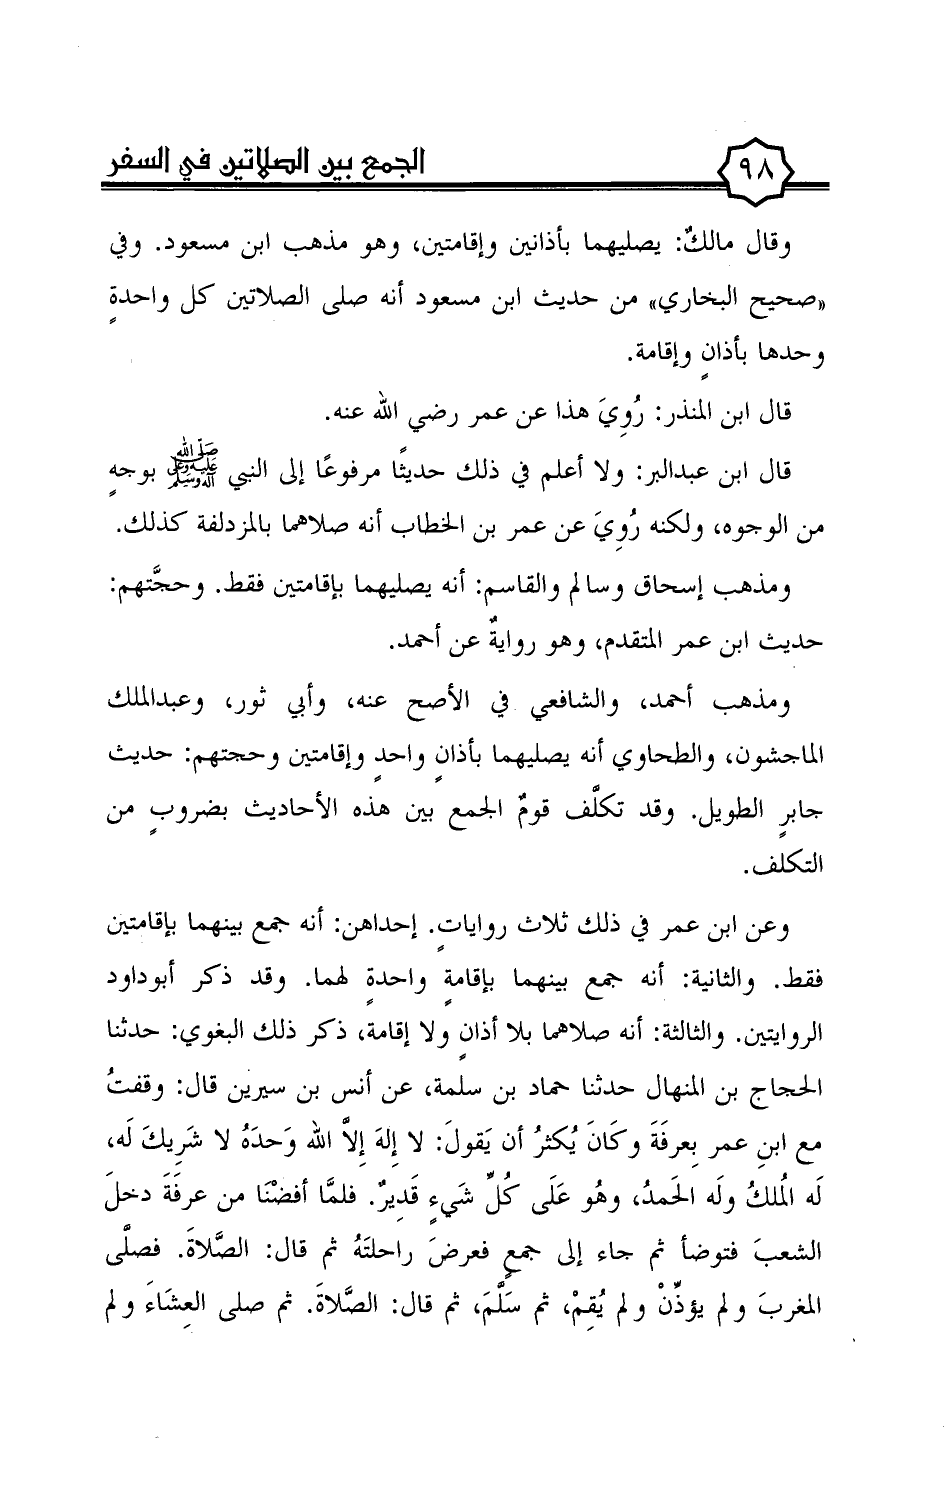 ٩٨
الجمع بين الصلاتين في السفر
وقال مالكٌ: يصليهما بأذانين وإقامتين، وهو مذهب ابن مسعود. وفي
«صحيح البخاري» من حديث ابن مسعود أنه صلى الصلاتين كل واحدةٍ
وحدها بأذانٍ وإقامة.
قال ابن المنذر: رُوِيَ هذا عن عمر رضي الله عنه.
قال ابن عبدالبر: ولا أعلم في ذلك حديثًا مرفوعًا إلى النبي ﷺ بوجهٍ
من الوجوه، ولكنه رُوِيَ عن عمر بن الخطاب أنه صلاهما بالمزدلفة كذلك.
ومذهب إسحاق وسالم والقاسم: أنه يصليهما بإقامتين فقط. وحجَّتهم:
حديث ابن عمر المتقدم، وهو روايةٌ عن أحمد.
ومذهب أحمد، والشافعي في الأصح عنه، وأبي ثور، وعبدالملك
الماجشون، والطحاوي أنه يصليهما بأذانٍ واحدٍ وإقامتين وحجتهم: حديث
جابرٍ الطويل. وقد تكلَّف قومٌ الجمع بين هذه الأحاديث بضروبٍ من
التكلف.
وعن ابن عمر في ذلك ثلاث رواياتٍ. إحداهن: أنه جمع بينهما بإقامتين
فقط. والثانية: أنه جمع بينهما بإقامةٍ واحدةٍ لهما. وقد ذكر أبوداود
الروايتين. والثالثة: أنه صلاهما بلا أذانٍ ولا إقامة، ذكر ذلك البغوي: حدثنا
الحجاج بن المنهال حدثنا حماد بن سلمة، عن أنس بن سيرين قال: وقفتُ
مع ابنِ عمر بِعرفَةَ وكَانَ يُكثرُ أن يَقولَ: لا إلهَ إلاَّ الله وَحدَهُ لا شَرِيكَ لَه،
لَه المُلكُ ولَه الحَمدُ، وهُو عَلَى كُلِّ شَيءٍ قَديرٌ. فلمَّا أفضْنَا من عرفَةَ دخلَ
الشعبَ فتوضأ ثم جاء إلى جمعٍ فعرضَ راحلتَهُ ثم قال: الصَّلاةَ. فصلَّى
المغربَ ولم يؤذِّنْ ولم يُقِمْ، ثم سَلَّمَ، ثم قال: الصَّلاةَ. ثم صلى العِشَاءَ ولم